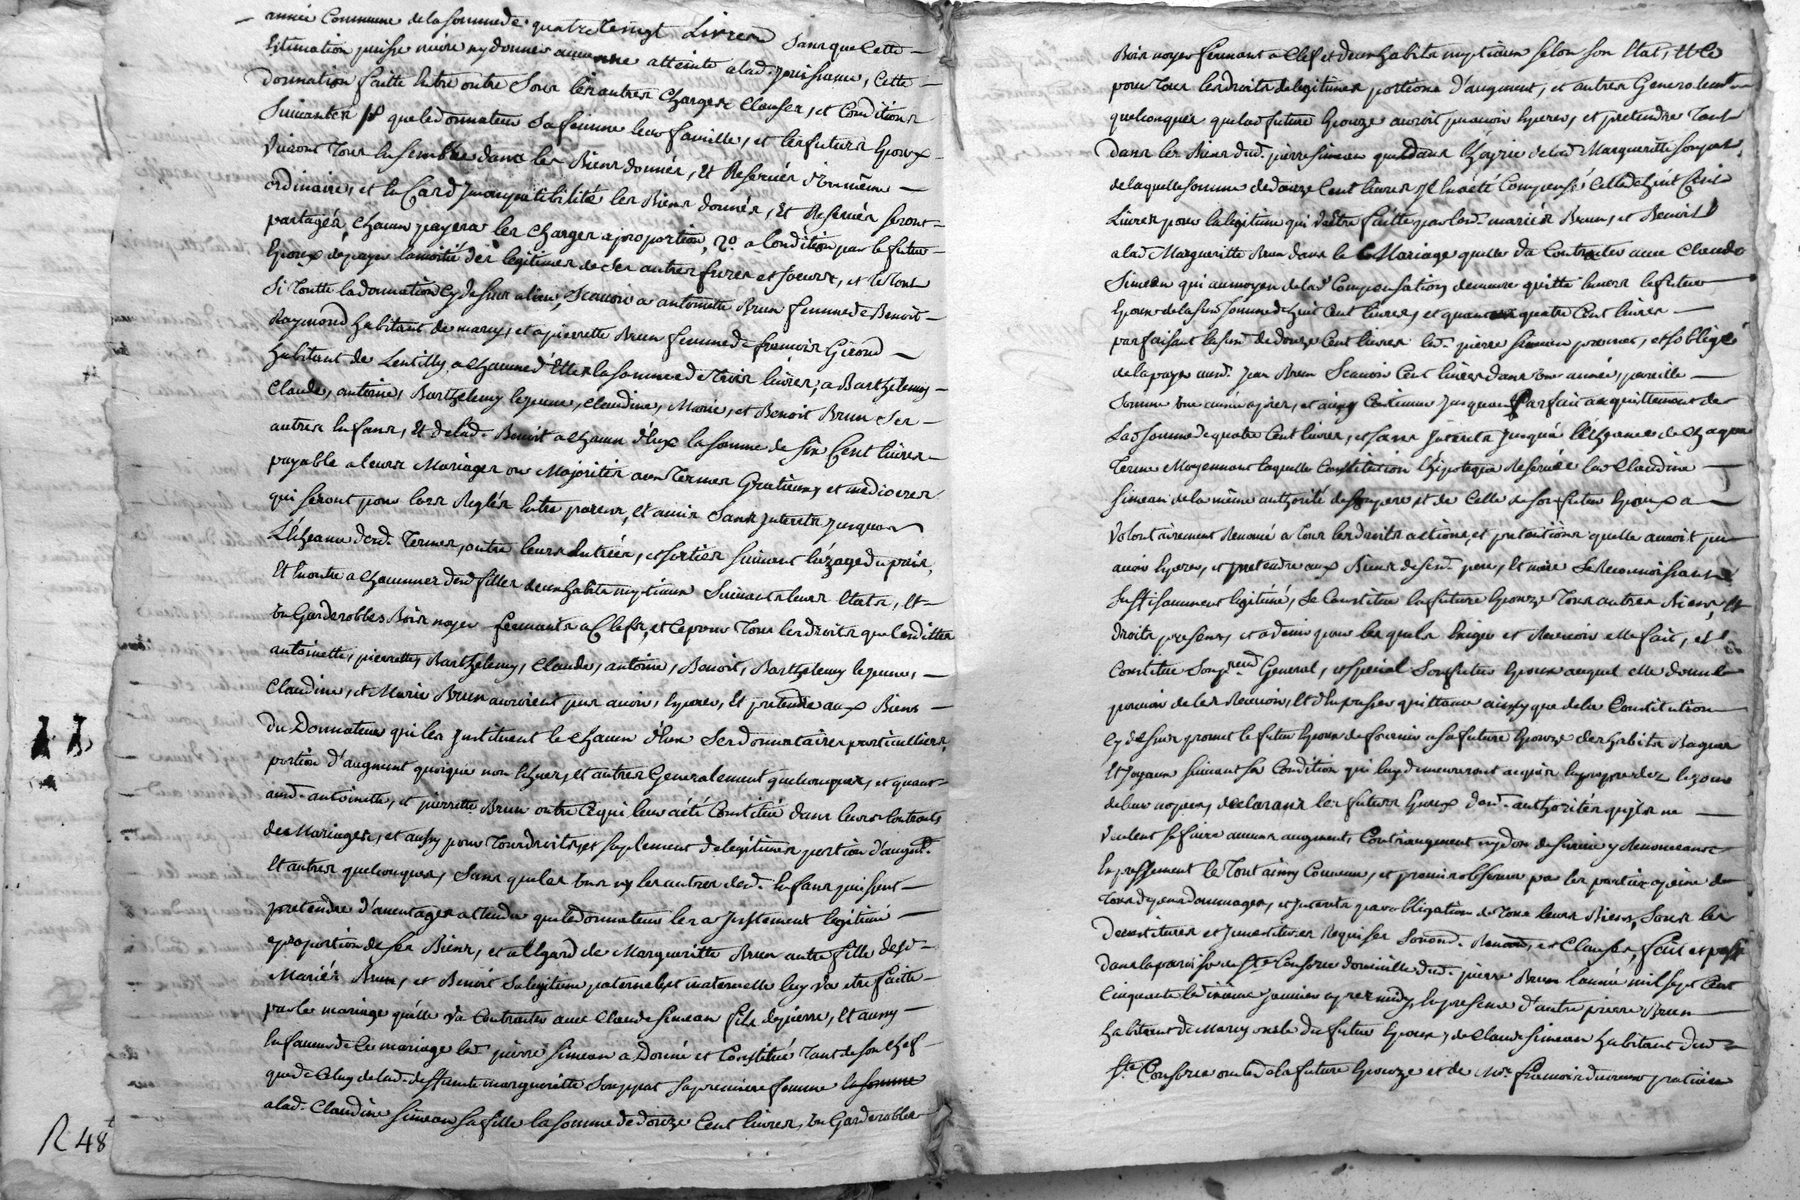 année Commune de la somme de quatre vingt Livres Sans que Cette
Estimation puisse nuire ny donner aucune atteinte alad. jouissance, Cette
donnation faitte Entre outre Sous les autres Charges Clauses, et Conditions
Suivantes que le donnateur Sa femme leur famille, et les futurs Epoux
Vivront Tous Ensemble dans les Biens donnés, Et Reservés d'un même
ordinaire, et En Cas d'Incompatibilité les Biens donnés, Et Reservés Seront
partagés, Chacun payera les Charges a proportion, 2o. a Condition par le futur
Epoux de payer la moitié des legitimes de Ses autres freres et soeurs, et le tout
Si Toutte la donnation Cy dessus a lieu, Scavoir a antoinette Brun femme de Benoit
Raymond habitant de marcy, et a pierrette Brun femme de francois Girond
habitant de Lentilly a Chacune d'Elles la somme de Trois livres, a Barthelemy
Claude, antoine, Barthelemy le jeune, Claudine, Marie, et Benoit Brun Ses
autres Enfans, Et de lad. Benoit a Chacun d'Eux la somme de six Cent livres
payable a leurs Mariages ou Majorités aux Termes Gratieux, et mediocres
qui seront pour lors Reglés Entre parens, Et amis Sans Interets Jusques a
L'Echeance desd. Termes, outre leurs Entrées, et sorties suivant l'Uzage du païs,
Et Encore a Chacunnes desd filles deux habits nuptiaux Suivant leurs Etats, Et
un Garderobbes Bois noyer fermants a Clefs, et Ce pour Tous les droits que lesdittes
antoinette, pierrette, Barthelemy, Claude, antoine, Benoit, Barthelemy le jeune,
Claudine, et Marie Brun auroient pus avoir, Esperer, Et pretendre aux Biens
du Donnateur qui les Instituent le Chacun d'Eux Ses donnataires particulliers,
portion d'augment quoique non Echus, et autres Generalement quelconques, et quant
auxd. antoinette, et pierrette Brun outre Ce qui leur a été Constitué dans leurs Contracts
de Mariages, et aussy pour Tous droits, et suplement de legitimes portion d'augmt.
Et autres quelconques, Sans que les uns ny les autres desd. Enfans puissent
pretendre d'avantages attendu que le donnateur les a Justement legitimé
a proportion de ses Biens, et a l'Egard de Margueritte Brun autre fille desd
Mariés Brun, et Benoit Sa legitime paternelle, et maternelle luy va etre faitte
par le mariage qu'Elle Va Contracter avec Claude Simean fils de pierre, Et aussy
En faveur de Ce mariage led. pierre Simean a Donné et Constitué Tant de Son Chef
que de Celuy de lad. deffunte marguerite Souppat Sa premiere femme la somme
a lad. Claudine Simean Sa fille la somme de douze Cent livres, un Garderobbes
Bois noyer fermant a Clef, et deux habits nuptiaux Selon son Etat, et Ce
pour Tous les droits de legitimes portions d'augment, et autres Generalemt
quelconques que lad future Epouze auroit pu avoir Esperer, et pretendre Tant
dans les Biens dud. pierre Simean que dans L'hoyrie de lad Margueritte Souppat,
de laquelle somme de douze Cent livres Il En a été Compensé Celle de huit Cent
Livres pour la legitime qui Va être faitte par lesd. mariés Brun, et Benoit
a lad Margueritte Brun dans le Mariage qu'elle Va Contracter avec Claude
Simean qui au moyen de lad Compensation demeure quitte Envers le futur
Epoux de la susd somme de huit Cent livres, et quant aux quatre Cent livres
parfaisant la susd. de douze Cent livres led. pierre Simean promet, et s'oblige
de la payer aud. Jean Brun Scavoir Cent livres dans une année, pareille
Somme une année après, et ainsy Continuer Jusques a parfait acquittement de
Lad somme de quatre Cent livres, et sans Interets Jusqu'a l'Echeance de Chaque
Terme Moyennant laquelle Constitution l'hipoteque Reservée lad Claudine
Simean de la même authorité de son pere et de Celle de son futur Epoux a
Volontairement Renoncé a Tous les droits actions, et pretentions quelle auroit pu
avoir Esperer, et pretendre aux Biens de sesd. pere, Et mere Se Reconnoissant
Suffisamment legitimé, Se Constitue la future Epouze Tous autres Biens, Et
droits presents, et a venir pour lesquels Exiger et Recevoir elle fait, et
Constitue Son procureur General, et spécial Son futur Epoux auquel elle donne
pouvoir de les Recevoir, Et d'En passer quittance ainsy que de la Constitution
Cy dessus promet le futur Epoux de fournir a sa future Epouze des habits Bagues
Et Joyaux suivant Sa Condition qui luy demeureront acquis En propre dez le jour
de leurs noces, declarans les futurs Epoux desd. authorités qu'ils ne
Veulent Se faire aucuns augment, Contraugment ny don de Survie y Renonceants
Expressement le Tout ainsy Convenu, et promis observer par les parties a peine de
Tous depens dommages, et Interets par obligation de Tous leurs Biens, Sous les
devestitures et Investitures Requises Renon. et Clauses, fait et passé
dans la paroisse de Ste Consorce domicille dud. pierre Brun l'année mil sept Cent
Cinquante Janvier apres midy En presence d'autre pierre Brun
habitant de Marcy oncle du futur Epoux, de Claude Simean habitant dud
Ste. Consorce oncle de la future Epouze et de Me. francois praticien
R 48